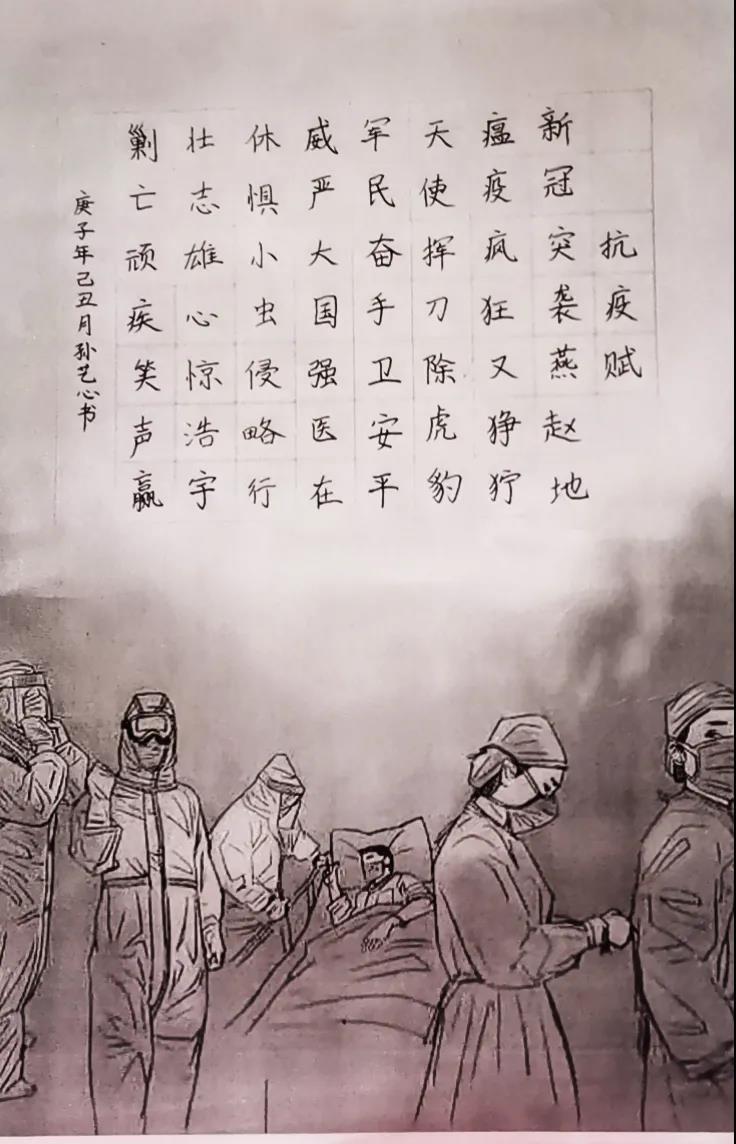 抗疫赋
新冠突袭燕赵地
瘟疫疯狂又狰狞
天使挥刀除虎豹
军民奋手卫安平
威严大国强医在
休惧小虫侵略行
壮志雄心惊浩宇
剿亡顽疾笑声赢
庚子年己丑月孙艺心书